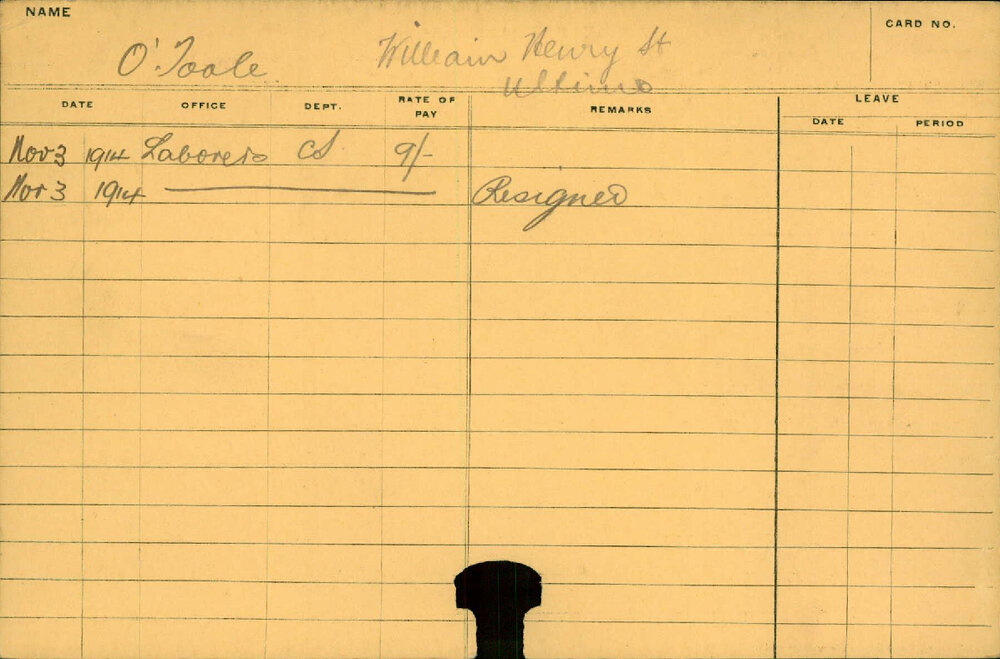 NAME
CARD NO.
O'Toole William Henry St
Ultimo
DATE OFFICE DEPT. RATE OF PAY REMARKS LEAVE
DATE PERIOD
Nov 3 1914 Laborers CS 9/-
Nov 3 1914 Resigned